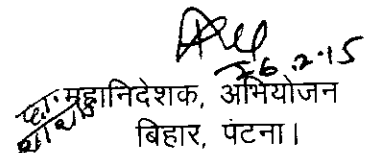 26.2.15
महानिदेशक, अभियोजन
बिहार, पटना।